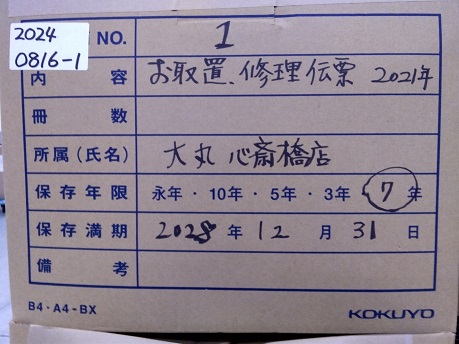 2024
0816-1
NO. 1
内容 お取置、修理伝票 2021年
冊数
所属(氏名) 大丸 心斎橋店
保存年限 永年・10年・5年・3年 7年
保存満期 2028年12月31日
備考
B4・A4-BX
KOKUYO